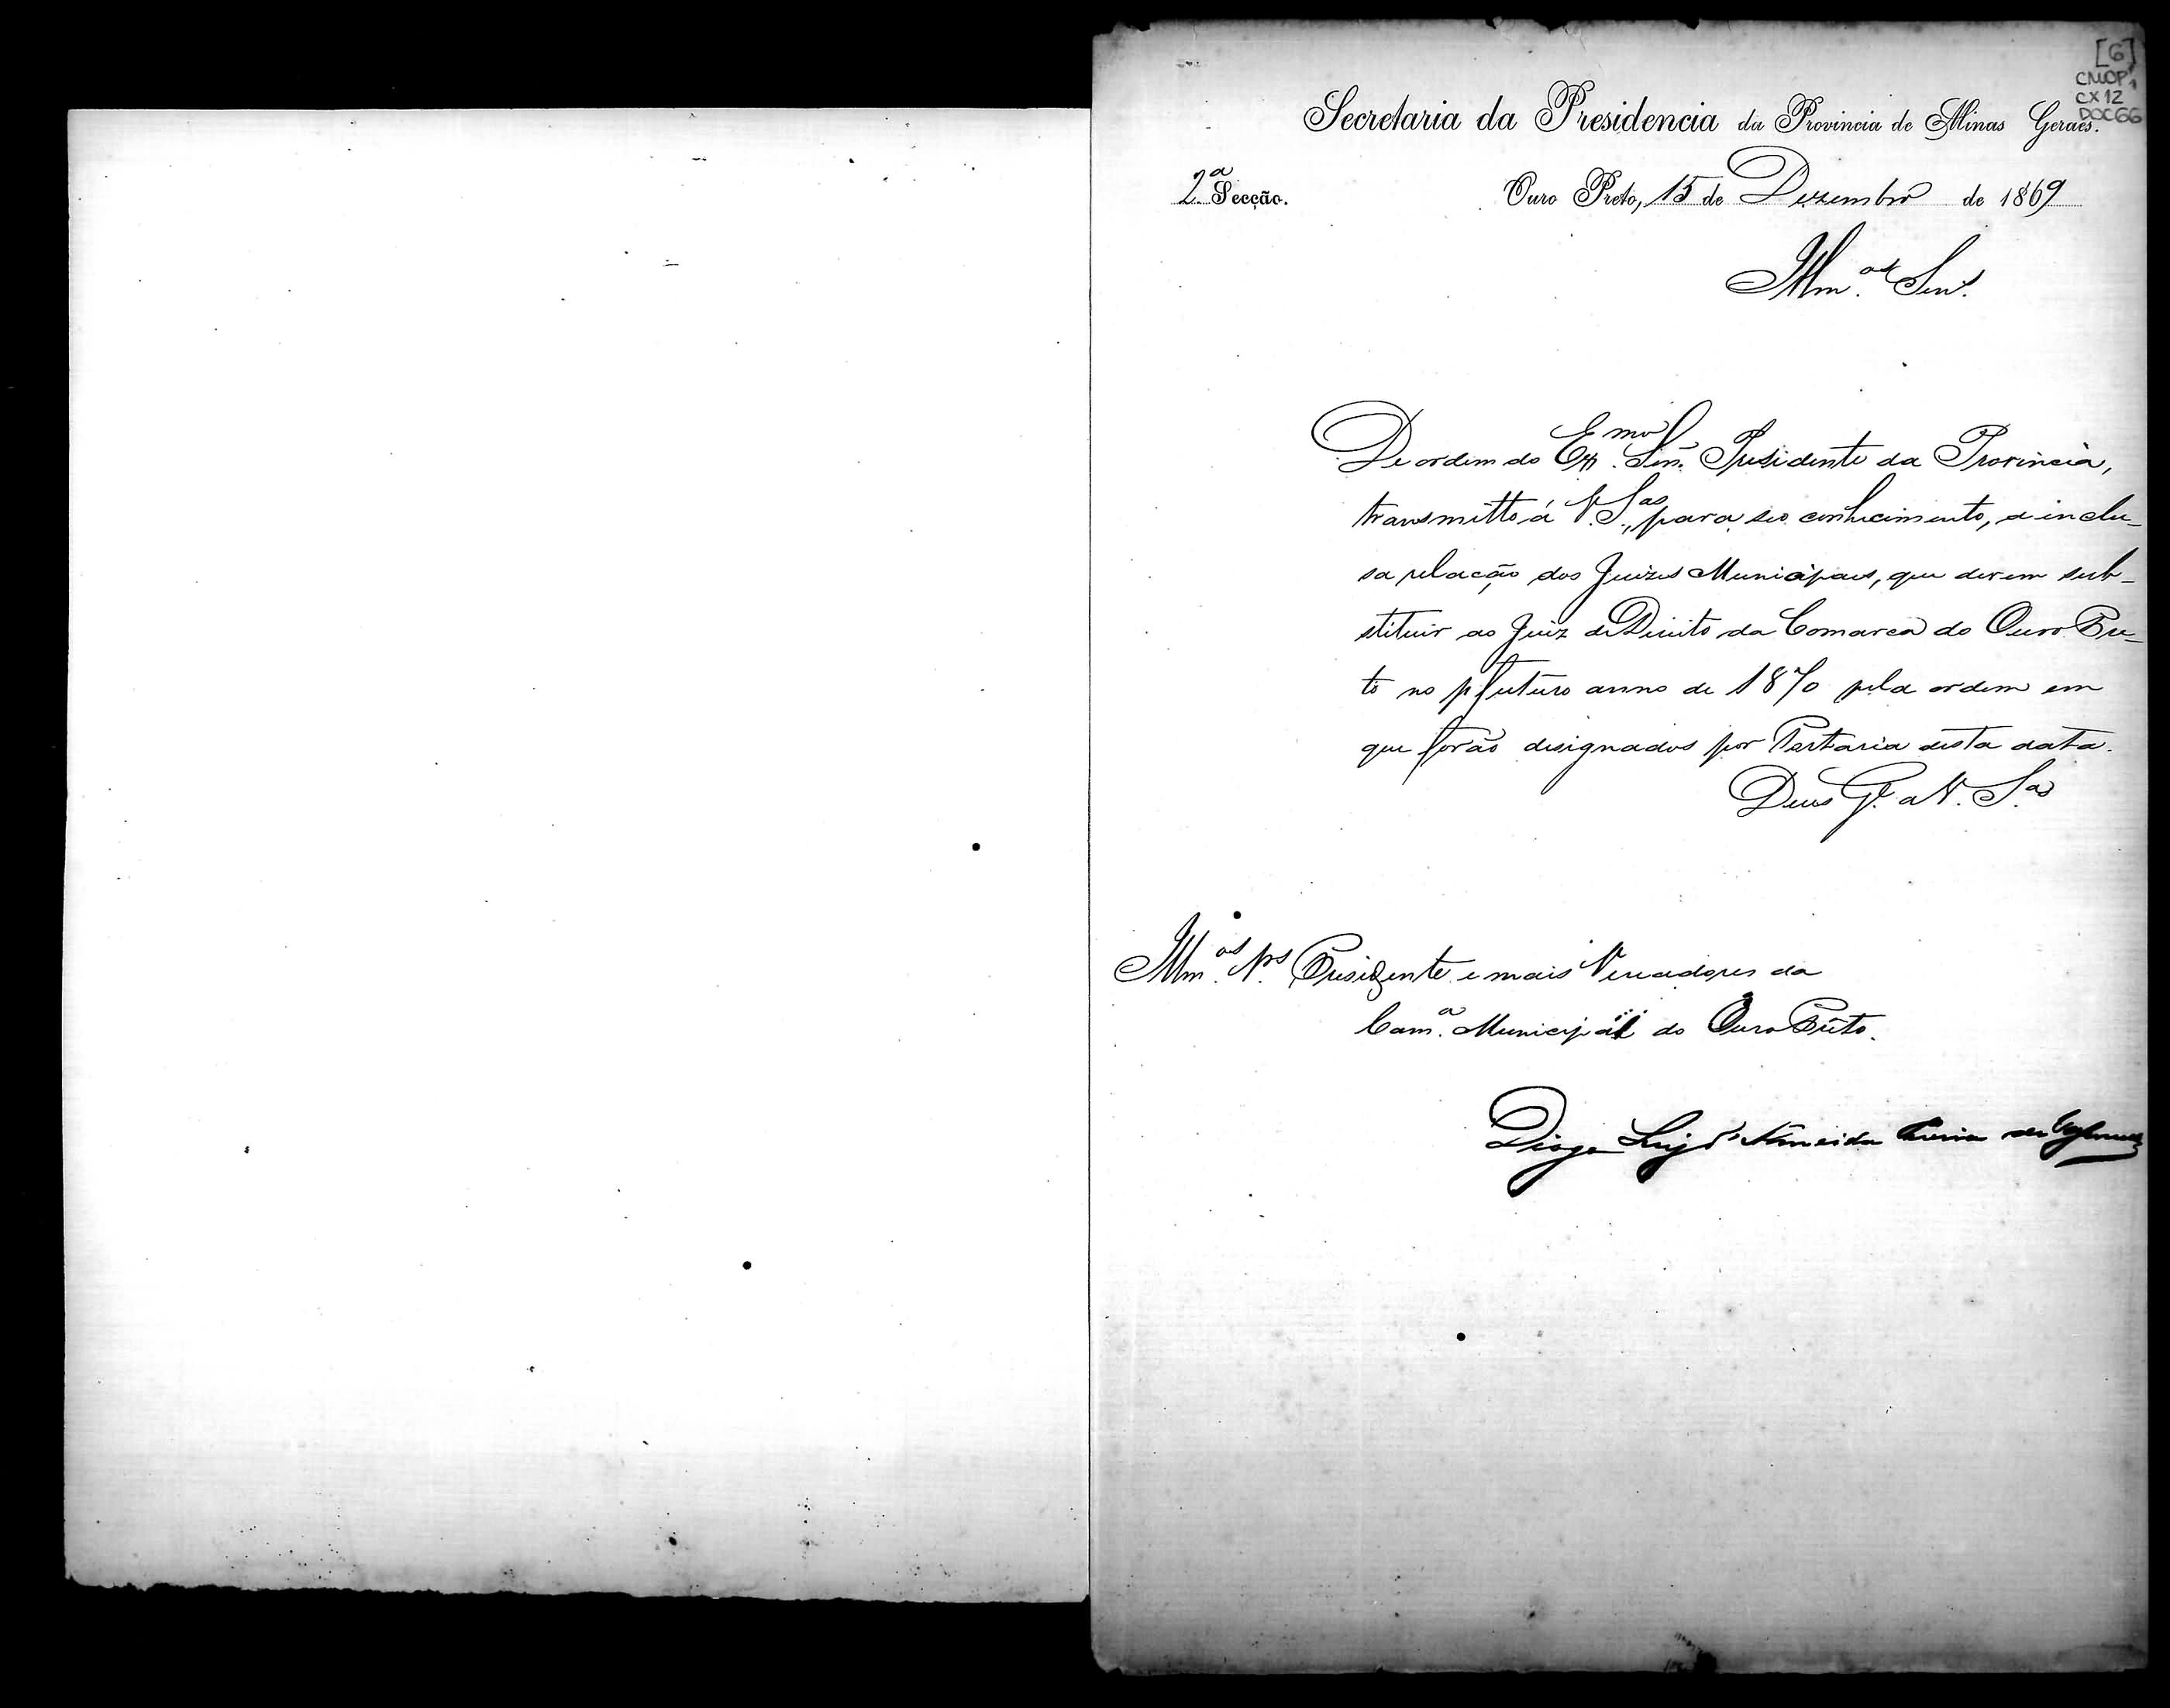 [6]
CMOP
CX 12
DOC 66
Secretaria da Presidencia da Provincia de Minas Geraes.
2ª Secção. Ouro Preto, 15 de Dezembro de 1869
Illm.os Senr.s
De ordem do Ex.mo Senr. Presidente da Provincia,
transmitto á V. S.as, para seo conhecimento, a inclu-
sa relação dos Juizes Municipaes, que devem sub-
stituir ao Juiz de Direito da Comarca do Ouro Pre-
to no p futuro anno de 1870 pela ordem em
que forão designados por Portaria desta data.
Deus G.e a V. S.as
Illm.os Presidente e mais Vereadores da
Cam.a Municipal do Ouro Preto.
Diogo Luiz d'Almeida